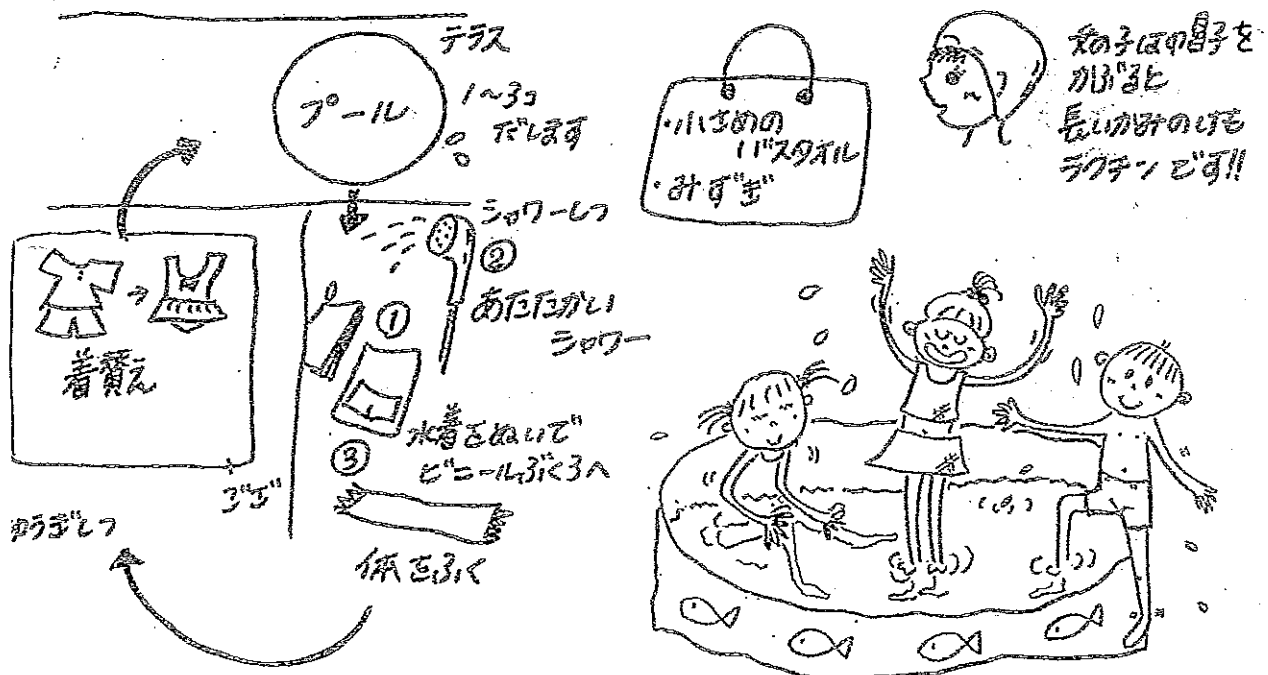 テラス
プール
1~3コ
だします
シャワーしつ
②
あたたかい
シャワー
①
水着をぬいで
ビニールぶくろへ
③
体をふく
着替え
ござ
ゆうぎしつ
・小さめの
バスタオル
・みずぎ
女の子は帽子を
かぶると
長いかみのけも
ラクチンです!!